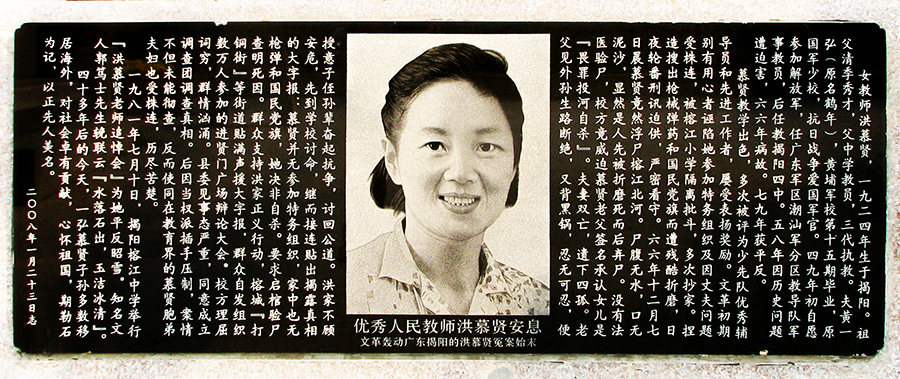 女教师洪慕贤，一九二四年生于揭阳。祖
父清季秀才，父中学教员，三代执教。夫黄一
弘（原名鹤年），黄埔军校第十五期毕业，原
国军少校，抗日战争爱国军官。四九年初自愿
参加解放军，任广东军区潮汕军分区教导队军
事教员，后任教揭阳四中。五八年因历史问题
遭迫害，六六年病故。七九年获平反。
慕贤教学出色，多次被评为少先队优秀辅
导员和先进工作者，屡受表扬奖励。文革初期
别有用心者诬陷她参加特务组织及因丈夫问题
受株连，被榕江小学隔离批斗，多次抄家。捏
造搜出枪械弹药和国民党旗而遭残酷折磨，日
夜轮番刑讯迫供，严密看守。一六六年十二月七
日晨慕贤竟然浮尸榕江北河。尸腹无水，口无
泥沙，显然是人先被折磨死而后弃尸。没有法
医验尸，校方竟威迫慕贤老父签名承认女儿是
『畏罪投河自杀』。夫妻双亡，遗下四孤。老
父见外孙生路断绝，又背黑锅，忍无可忍，便
授意子侄孙辈奋起抗争，讨回公道。洪家不顾
安危，先到学校讨命，继而接连贴出揭露真相
的大字报：慕贤并无参加特务组织，家中也无
枪弹和国民党旗，她决非自杀。要求启棺验尸
查明死因。群众支持洪家正义行动，榕城『打
铜街』等街道贴满声援大字报，群众自发组织
数万人参加的进贤门广场辩论大会。校方理屈
词穷，群情汹涌。县委见事态严重，同意成立
调查团调查真相。后因当权派插手压制，案情
不但未能彻查，反而使同在教育界的慕贤胞弟
夫妇也受株连，历尽苦楚。
一九八一年七月十日，揭阳榕江中学举行
『洪慕贤老师追悼会』为她平反昭雪。知名文
人郭笃士先生挽联云『水落石出，玉洁冰清』。
四十多年后的今天，一弘慕贤子孙多数移
居海外，对社会卓有贡献，心怀祖国，期勒石
为记，以正先人美名。
二〇〇八年一月二十三日志
优秀人民教师洪慕贤安息
文革轰动广东揭阳的洪慕贤冤案始末